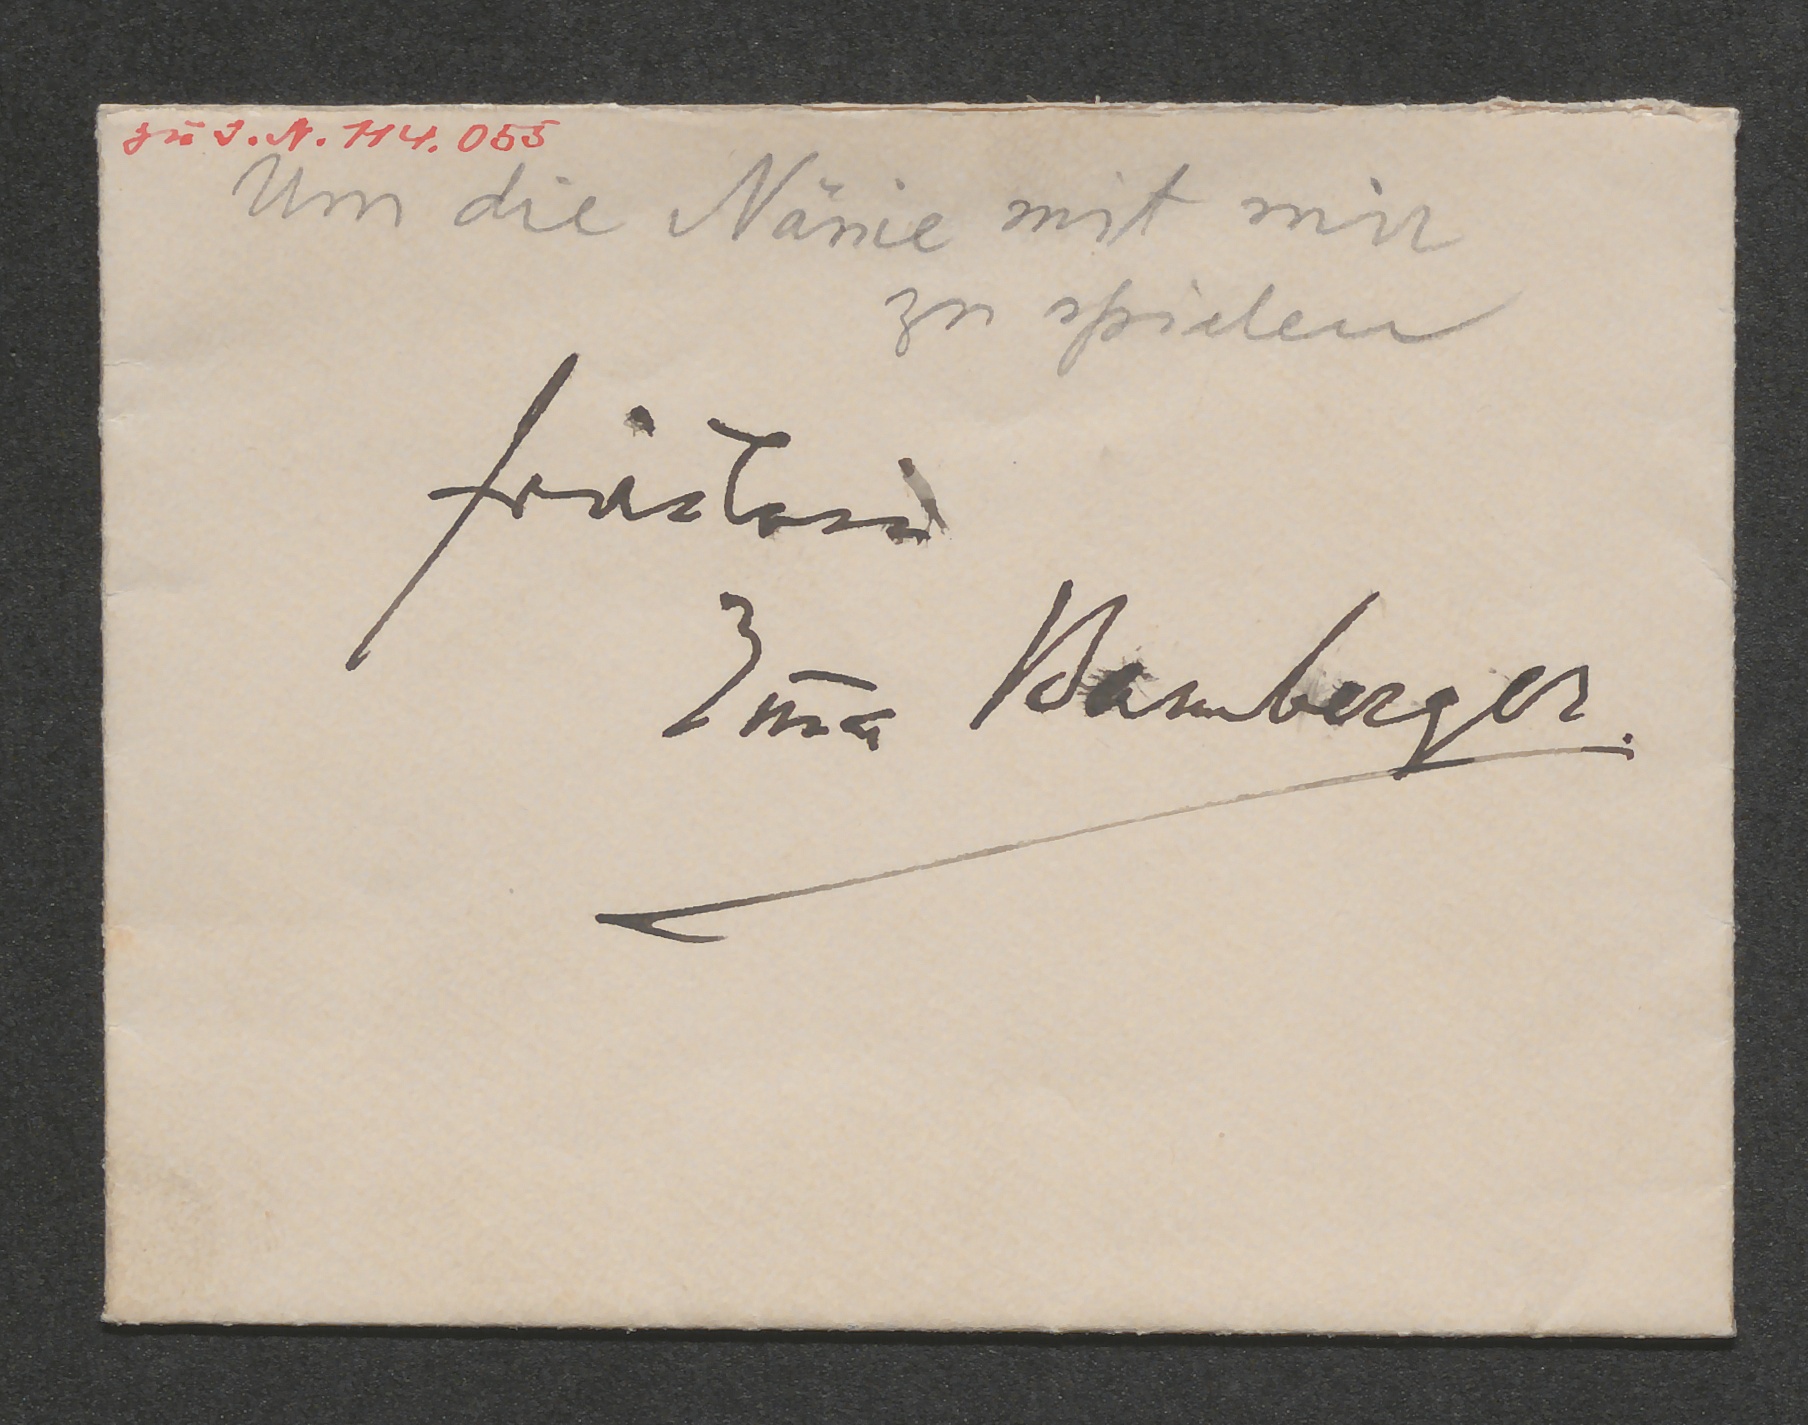 zu I.N. 114.055
Um die Nänie mit mir
zu spielen
Fräulein
Bamberger.